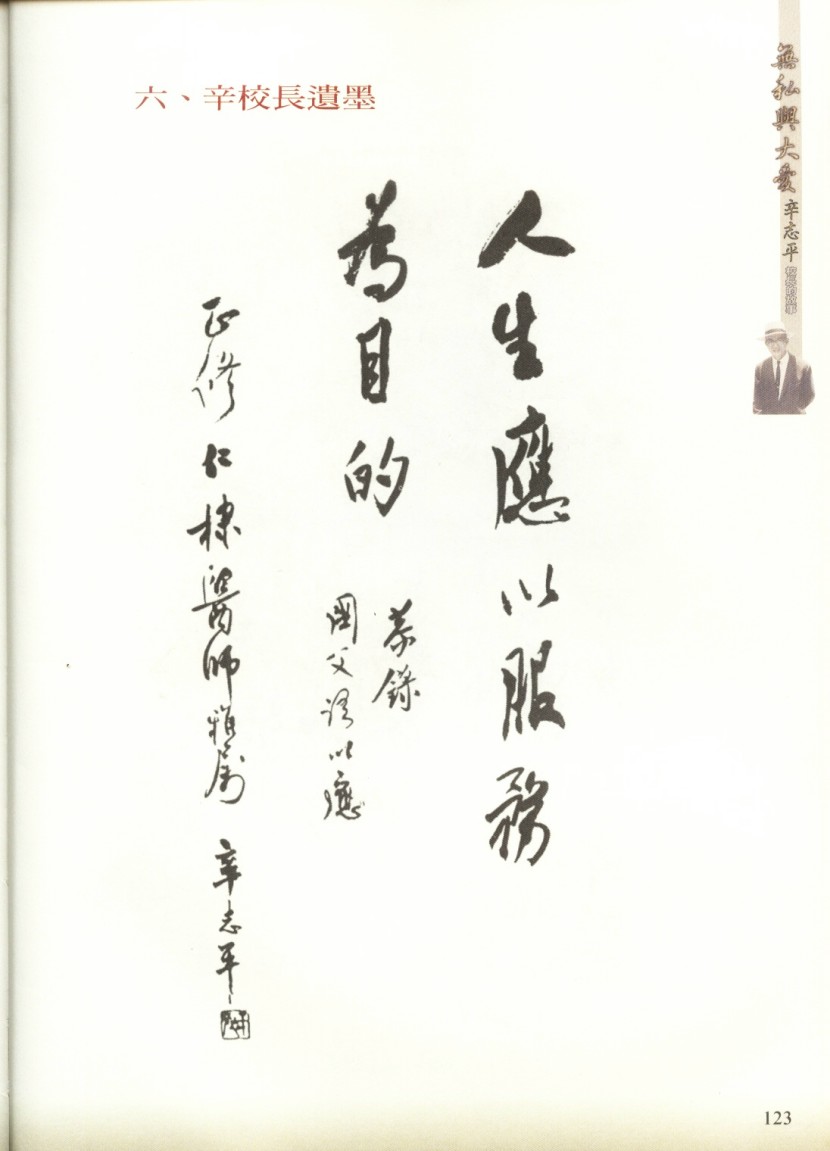 六、辛校長遺墨
人生應以服務
為目的
恭錄
國父語以應
正修仁棣醫師雅屬
辛志平
無私與大愛 辛志平 校長的故事
123